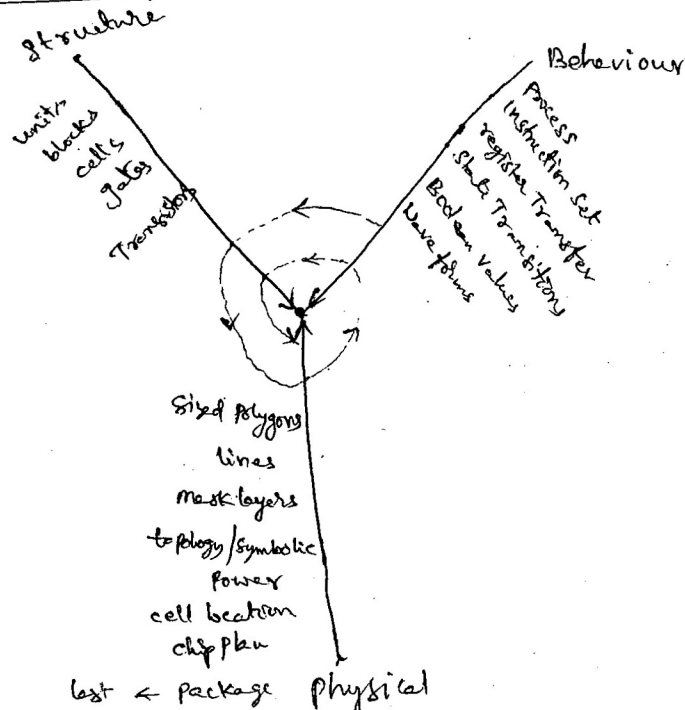 Structure
Behaviour
units
blocks
cells
gates
Transistors
Process
Instruction Set
register Transfer
State Transitions
Boolean values
Wave forms
Sized polygons
lines
mask layers
topology/symbolic
Power
cell location
chip plan
last ← package physical